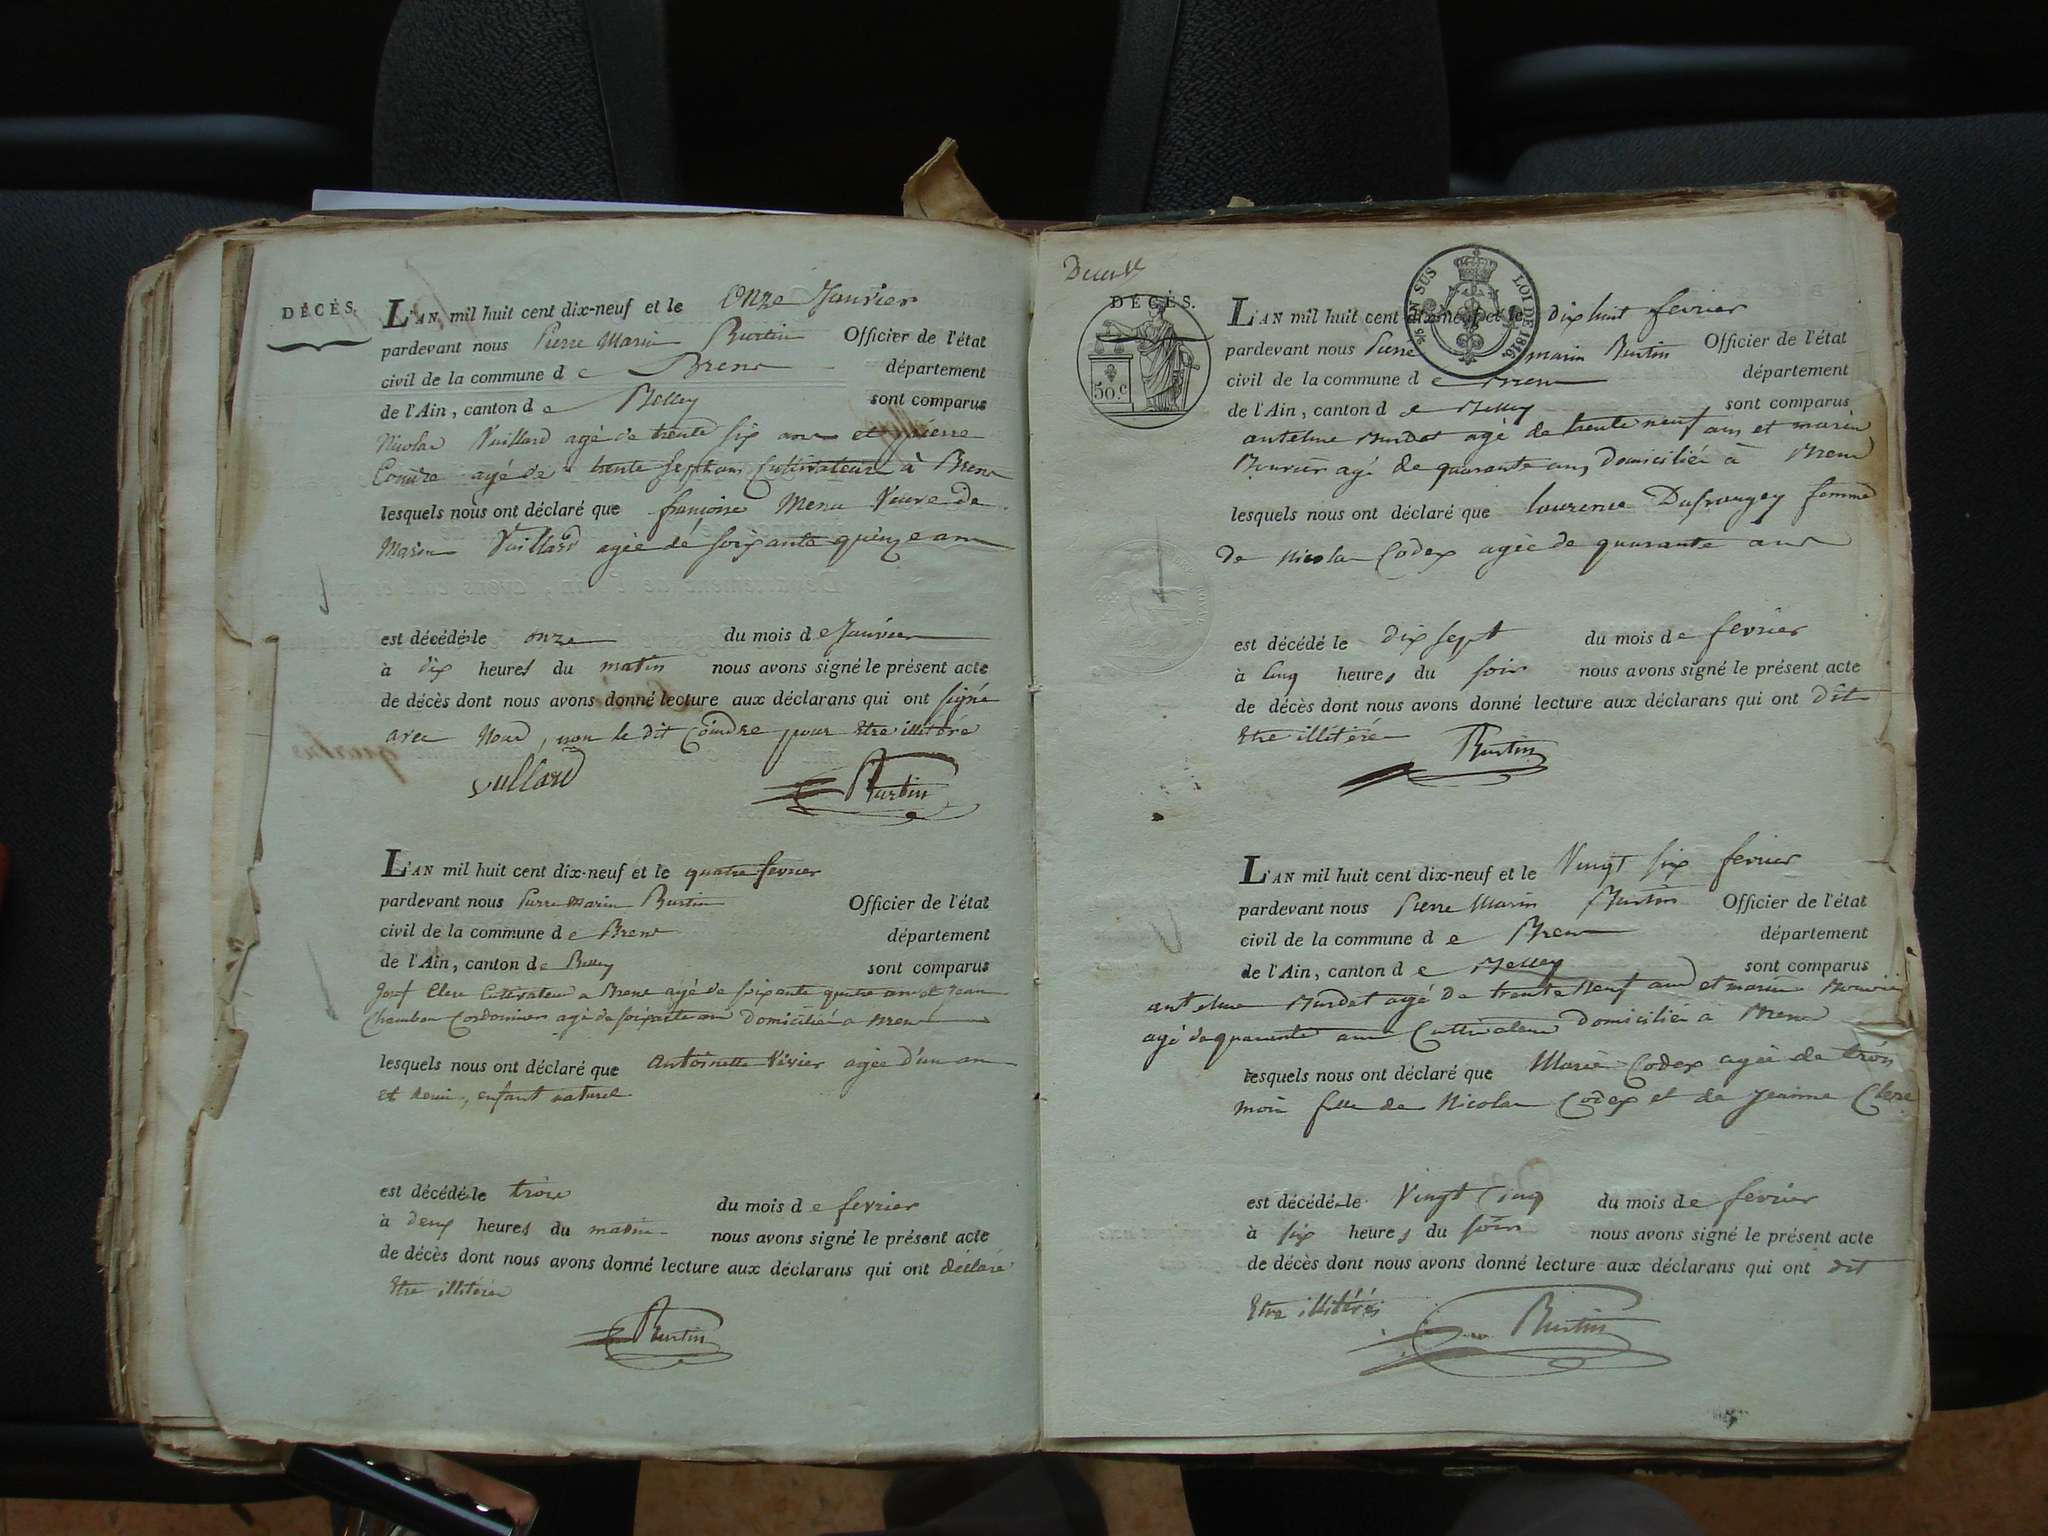 DÉCÈS.
L'AN mil huit cent dix-neuf et le onze Janvier
pardevant nous Pierre Marin Burtin Officier de l'état
civil de la commune d e Brens département
de l'Ain, canton d e Belley sont comparus
Nicolas Vuillard agé de trente six ans et pierre
Coindre agé de trente sept ans Cultivateurs à Brens
lesquels nous ont déclaré que françoise Menu Veuve de
Marin Vuillard agée de soixante quinze ans
est décédé le onze du mois d e Janvier
à dix heures du matin nous avons signé le présent acte
de décès dont nous avons donné lecture aux déclarans qui ont signé
avec Nous, non le dit Coindre pour Etre illitéré
Vullard Burtin
L'AN mil huit cent dix-neuf et le quatre fevrier
pardevant nous Pierre Marin Burtin Officier de l'état
civil de la commune d e Brens département
de l'Ain, canton d e Belley sont comparus
Josef Clerc Cultivateur a Brens agé de soixante quatre ans et Jean
Chambon Cordonnier agé de soixante ans domicilié a Brens
lesquels nous ont déclaré que Antoinette Vivier agée d'un an
et demi, enfant naturel
est décédé le trois du mois d e fevrier
à deux heures du matin nous avons signé le présent acte
de décès dont nous avons donné lecture aux déclarans qui ont déclaré
Etre illitérés
Burtin
DÉCÈS.
50.c
EN SUS LOI DE 1816
L'AN mil huit cent dix-neuf et le dix huit fevrier
pardevant nous Pierre marin Burtin Officier de l'état
civil de la commune d e Brens département
de l'Ain, canton d e Belley sont comparus
antelme Burdet agé de trente neuf ans et marin
Bouvier agé de quarante ans, domiciliés à Brens
lesquels nous ont déclaré que laurence Dufrangey femme
de Nicolas Codex agée de quarante ans
est décédé le dix sept du mois d e fevrier
à Cinq heures du soir nous avons signé le présent acte
de décès dont nous avons donné lecture aux déclarans qui ont dit
Etre illitérés Burtin
L'AN mil huit cent dix-neuf et le Vingt six fevrier
pardevant nous Pierre Marin Burtin Officier de l'état
civil de la commune d e Brens département
de l'Ain, canton d e Belley sont comparus
antelme Burdet agé de trente neuf ans et marin Bouvier
agé de quarante ans Cultivateurs domiciliés a Brens
lesquels nous ont déclaré que Marie Codex agée de trois
mois fille de Nicolas Codex et de Jeanne Clerc
est décédé le Vingt Cinq du mois d e fevrier
à six heures du soir nous avons signé le présent acte
de décès dont nous avons donné lecture aux déclarans qui ont dit
Etre illitérés
Burtin